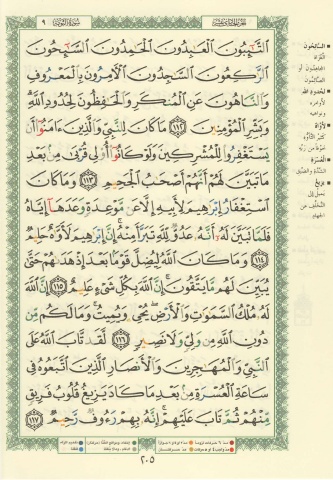 سورة التوبة
٩
التَّٰٓئِبُونَ الْعَٰبِدُونَ الْحَٰمِدُونَ السَّٰٓئِحُونَ
الرَّٰكِعُونَ السَّٰجِدُونَ الْءَامِرُونَ بِالْمَعْرُوفِ
وَالنَّاهُونَ عَنِ الْمُنكَرِ وَالْحَٰفِظُونَ لِحُدُودِ اللَّهِ ۗ
وَبَشِّرِ الْمُؤْمِنِينَ ١١٢ مَا كَانَ لِلنَّبِيِّ وَالَّذِينَ ءَامَنُوٓا أَن
يَسْتَغْفِرُوا لِلْمُشْرِكِينَ وَلَوْ كَانُوٓا أُولِي قُرْبَىٰ مِنۢ بَعْدِ
مَا تَبَيَّنَ لَهُمْ أَنَّهُمْ أَصْحَٰبُ الْجَحِيمِ ١١٣ وَمَا كَانَ
اسْتِغْفَارُ إِبْرَٰهِيمَ لِأَبِيهِ إِلَّا عَن مَّوْعِدَةٍ وَعَدَهَآ إِيَّاهُ
فَلَمَّا تَبَيَّنَ لَهُۥٓ أَنَّهُۥ عَدُوٌّ لِّلَّهِ تَبَرَّأَ مِنْهُ ۚ إِنَّ إِبْرَٰهِيمَ لَأَوَّٰهٌ حَلِيمٌ
١١٤ وَمَا كَانَ اللَّهُ لِيُضِلَّ قَوْمًۢا بَعْدَ إِذْ هَدَىٰهُمْ حَتَّىٰ
يُبَيِّنَ لَهُم مَّا يَتَّقُونَ ۚ إِنَّ اللَّهَ بِكُلِّ شَيْءٍ عَلِيمٌ ١١٥ إِنَّ اللَّهَ
لَهُۥ مُلْكُ السَّمَٰوَٰتِ وَالْأَرْضِ ۖ يُحْيِۦ وَيُمِيتُ ۚ وَمَا لَكُم مِّن
دُونِ اللَّهِ مِن وَلِيٍّ وَلَا نَصِيرٍ ١١٦ لَّقَد تَّابَ اللَّهُ عَلَى
النَّبِيِّ وَالْمُهَٰجِرِينَ وَالْأَنصَارِ الَّذِينَ اتَّبَعُوهُ فِي
سَاعَةِ الْعُسْرَةِ مِنۢ بَعْدِ مَا كَادَ يَزِيغُ قُلُوبُ فَرِيقٍ
مِّنْهُمْ ثُمَّ تَابَ عَلَيْهِمْ ۚ إِنَّهُۥ بِهِمْ رَءُوفٌ رَّحِيمٌ ١١٧
السائحون
لحدود الله
لأواه
العسرة
يزيغ
٢٠٥